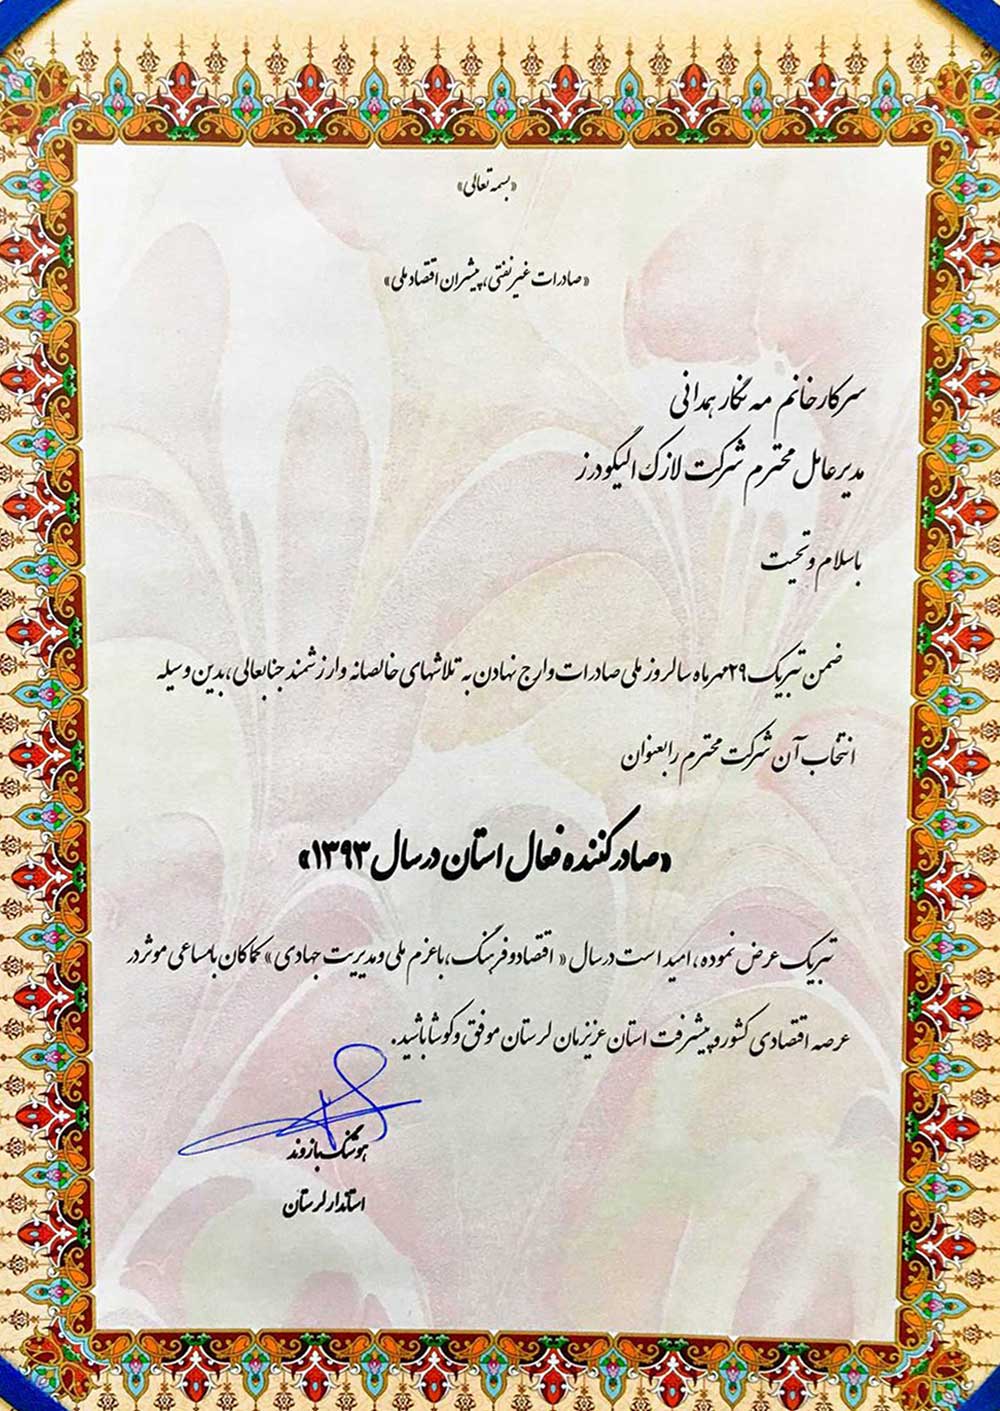 «بسمه تعالی»
«صادرات غیر نفتی، پیشران اقتصاد ملی»
سرکار خانم مه نگار همدانی
مدیر عامل محترم شرکت لازک الیگودرز
با سلام و تحیت
ضمن تبریک ۲۹ مهرماه سالروز ملی صادرات و ارج نهادن به تلاشهای خالصانه و ارزشمند جنابعالی، بدین وسیله
انتخاب آن شرکت محترم را بعنوان
«صادر کننده فعال استان در سال ۱۳۹۳»
تبریک عرض نموده، امید است در سال « اقتصاد و فرهنگ، با عزم ملی و مدیریت جهادی » کماکان با مساعی موثر در
عرصه اقتصادی کشور و پیشرفت استان عزیزمان لرستان موفق و کوشا باشید.
هوشنگ بازوند
استاندار لرستان